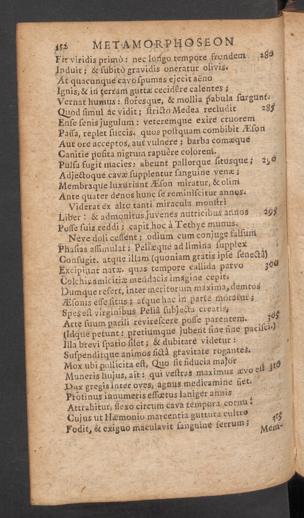 152 METAMORPHOSEON
Fit viridis primò: nec longo tempore frondem 280
Induit; & subitò gravidis oneratur olivis.
At quacunque cavo spumas ejecit aëno
Ignis, & in terram guttæ cecidêre calentes;
Vernat humus: floresque, & mollia pabula surgunt.
Quod simul ac vidit; stricto Medea recludit 285
Ense senis jugulum: veteremque exire cruorem
Passa, replet succis. quos postquam combibit Æson
Aut ore acceptos, aut vulnere; barba comæque
Canitie posita nigrum rapuêre colorem.
Pulsa fugit macies: abeunt pallorque situsque; 290
Adjectoque cavæ supplentur sanguine venæ;
Membraque luxuriant Æson miratur, & olim
Ante quater denos hunc se reminiscitur annos.
Viderat ex alto tanti miracula monstri
Liber: & admonitus juvenes nutricibus annos 295
Posse suis reddi; capit hoc à Tethye munus.
Neve doli cessent; odium cum conjuge falsum
Phasias assimulat: Peliæque ad limina supplex
Confugit. atque illam (quoniam gravis ipse senectâ)
Excipiunt natæ. quas tempore callida parvo 300
Colchis amicitiæ mendacis imagine cepit.
Dumque refert, inter meritorum maxima, demtos
Æsonis esse situs; atque hac in parte moratur;
Spes est virginibus Peliâ subjecta creatis,
Arte suum parili revirescere posse parentem. 305
(Idque petunt: pretiumque jubent sine fine pacisci)
Illa brevi spatio silet; & dubitare videtur:
Suspenditque animos fictâ gravitate rogantes.
Mox ubi pollicita est, Quo sit fiducia major
Muneris hujus, ait: qui vestras maximus ævo est 310
Dux gregis inter oves, agnus medicamine fiet.
Protinus innumeris effœtus laniger annis
Attrahitur, flexo circum cava tempora cornu:
Cujus ut Hæmonio marcentia guttura cultro
Fodit, & exiguo maculavit sanguine ferrum; 315
Mem-